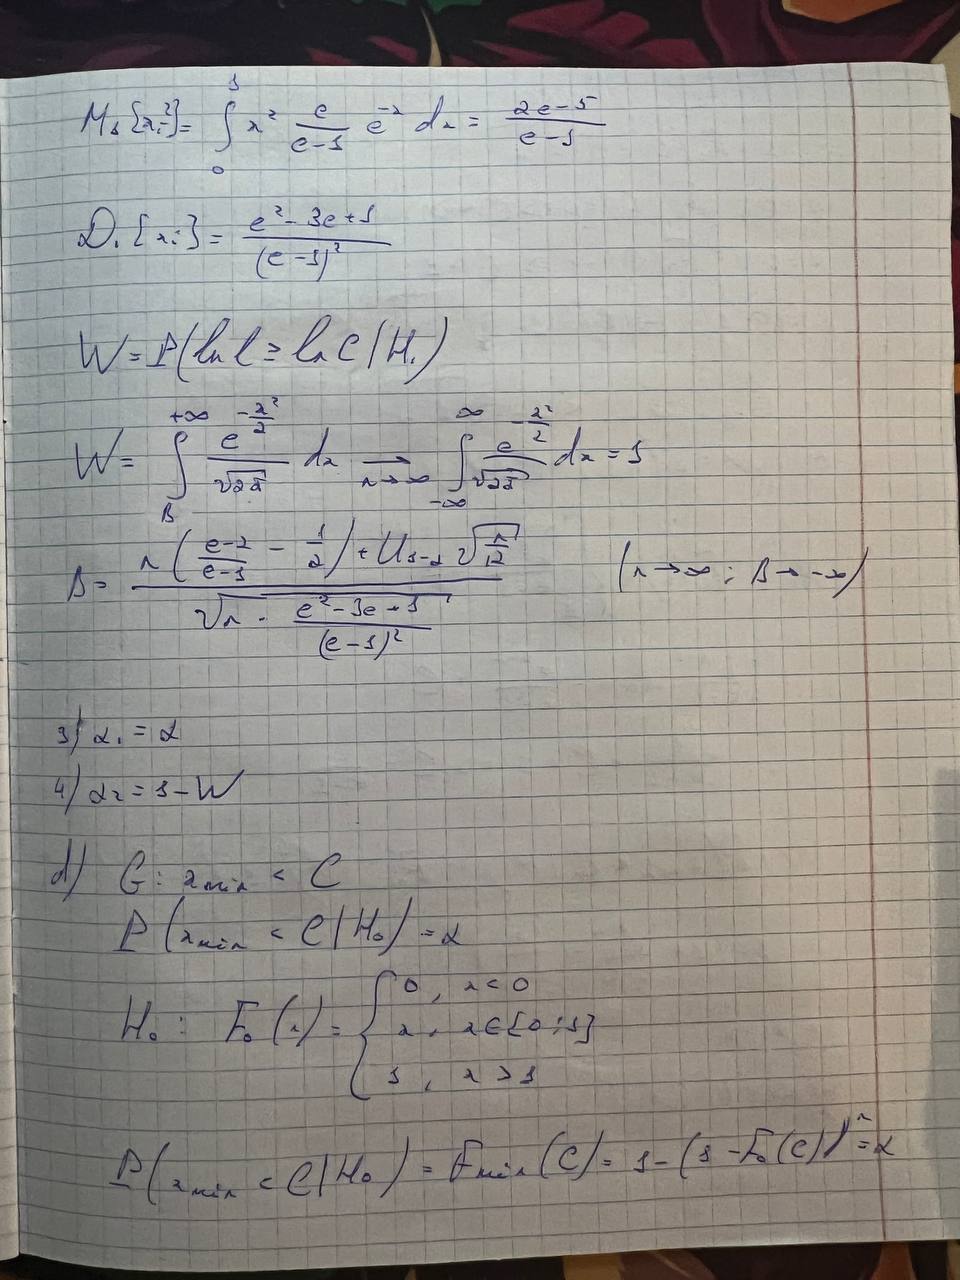 M₁{xᵢ²} = ∫₀¹ x² e/(e-1) e^(-x) dx = (2e-5)/(e-1)
D₁{xᵢ} = (e²-3e+1)/(e-1)²
W = P(ln l ≥ ln C | H₁)
W = ∫_B^(+∞) e^(-x²/2)/√(2π) dx → (n→∞) ∫_(-∞)^∞ e^(-x²/2)/√(2π) dx = 1
B = (n((e-2)/(e-1) - 1/2) + U_(1-α) √(n/12)) / √(n · (e²-3e+1)/(e-1)²) (n→∞ ; B→-∞)
3) α₁ = α
4) α₂ = 1-W
d) G: x_min < C
P(x_min < C | H₀) = α
H₀ : F₀(x) = { 0, x < 0
x, x ∈ [0;1]
1, x > 1
P(x_min < C | H₀) = F_min(C) = 1-(1-F₀(C))ⁿ = α